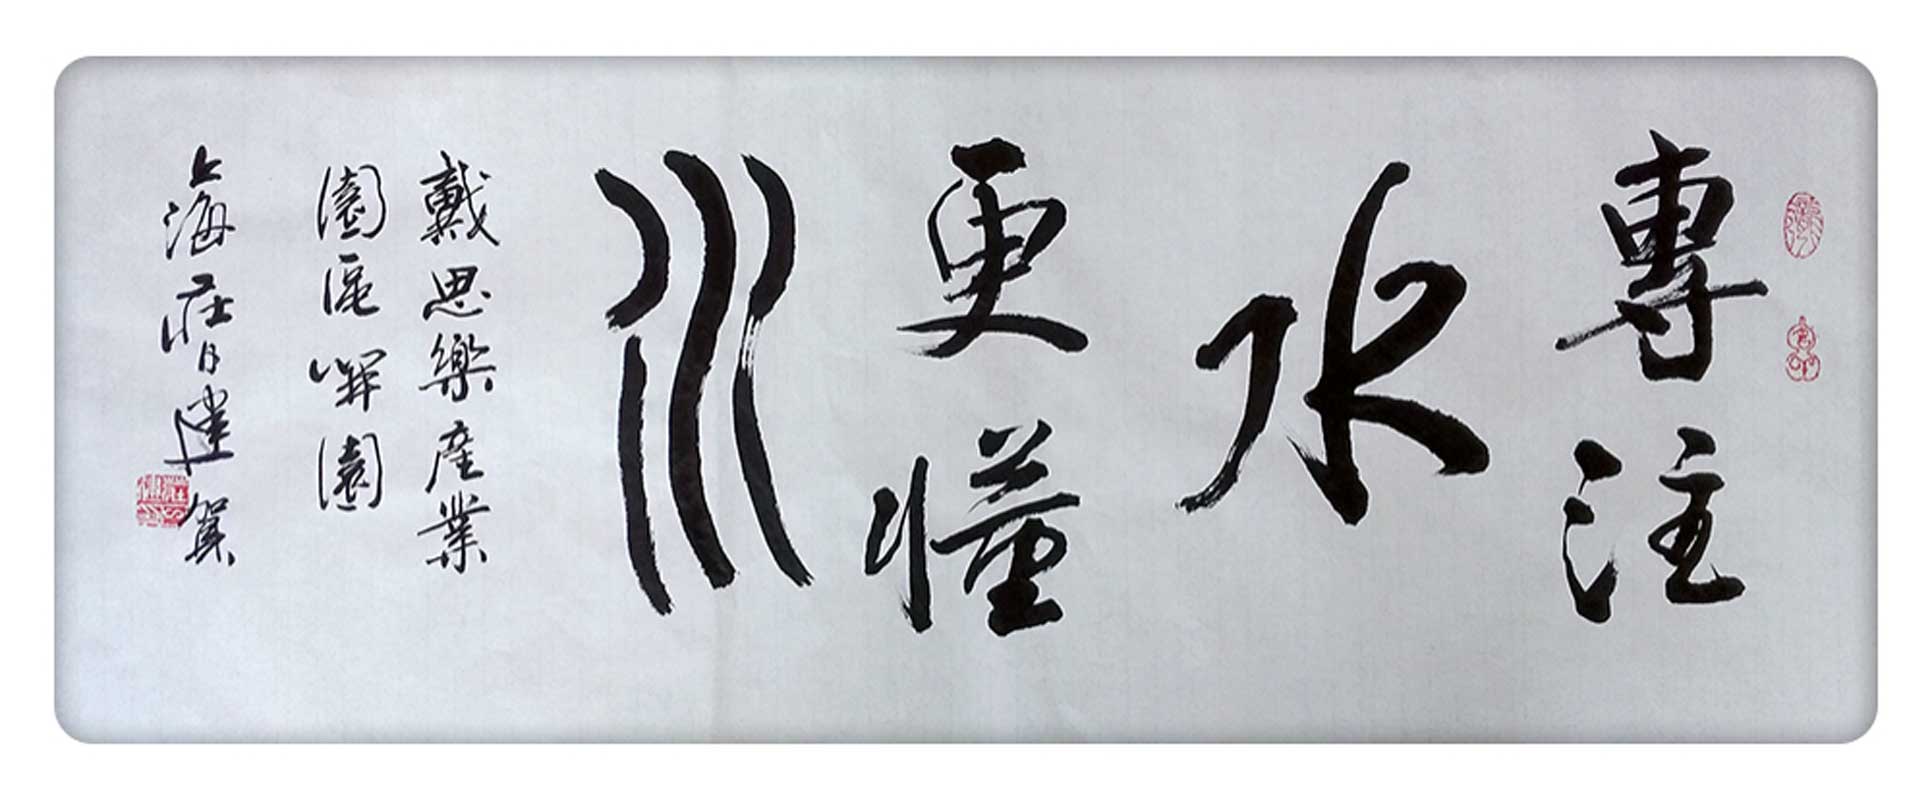 專注
水
更懂
水
戴思樂產業
園區開園
上海莊月賀